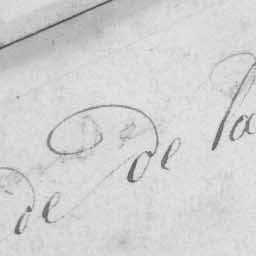 de de la